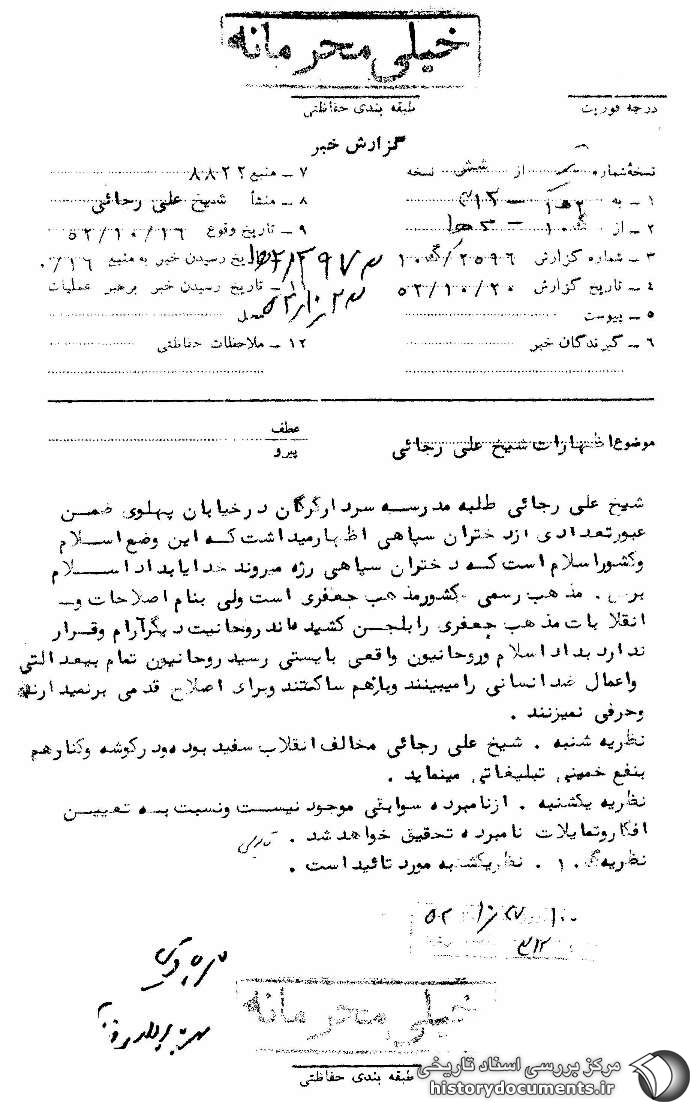 خیلی محرمانه
درجه فوریت
طبقه بندی حفاظتی
گزارش خبر
نسخه شماره از شش نسخه
۱ ـ به ۳۱۲
۲ ـ از
۳ ـ شماره گزارش ۲۵۹۶/گ۱۰
۴ ـ تاریخ گزارش ۵۲/۱۰/۲۰
۵ ـ پیوست
۶ ـ گیرندگان خبر
۷ ـ منبع ۸۸۲۲
۸ ـ منشأ شیخ علی رجائی
۹ ـ تاریخ وقوع ۵۲/۱۰/۱۶
تاریخ رسیدن خبر به منبع ۰/۱۶
۱۱ ـ تاریخ رسیدن خبر برهبر عملیات
محل
۱۲ ـ ملاحظات حفاظتی
موضوع اظهارات شیخ علی رجائی
عطف
پیرو
شیخ علی رجائی طلبه مدرسه سردارگرگان درخیابان پهلوی ضمن
عبورتعدادی ازدختران سپاهی اظهارمیداشت که این وضع اسلام
وکشوراسلام است که دختران سپاهی رژه میروند خدایابداد اسلام
برس . مذهب رسمی کشورمذهب جعفری است ولی بنام اصلاحات و ـ
انقلابات مذهب جعفری رابلجن کشیده اند روحانیت دیگرآرام وقرار
ندارد بداد اسلام وروحانیون واقعی بایستی رسید روحانیون تمام بیعدالتی
واعمال ضدانسانی رامیبینند وبازهم ساکتند وبرای اصلاح قدمی برنمیدارند
وحرفی نمیزنند .
نظریه شنبه . شیخ علی رجائی مخالف انقلاب سفید بوده ودرگوشه وکنارهم
بنفع خمینی تبلیغاتی مینماید .
نظریه یکشنبه . ازنامبرده سوابقی موجود نیست ونسبت به تعیین
افکاروتمایلات نامبرده تحقیق خواهد شد .
نظریه گ۱۰ . نظریکشنبه مورد تائید است .
۳۱۲
خیلی محرمانه
طبقه بندی حفاظتی
مرکز بررسی اسناد تاریخی
historydocuments.ir